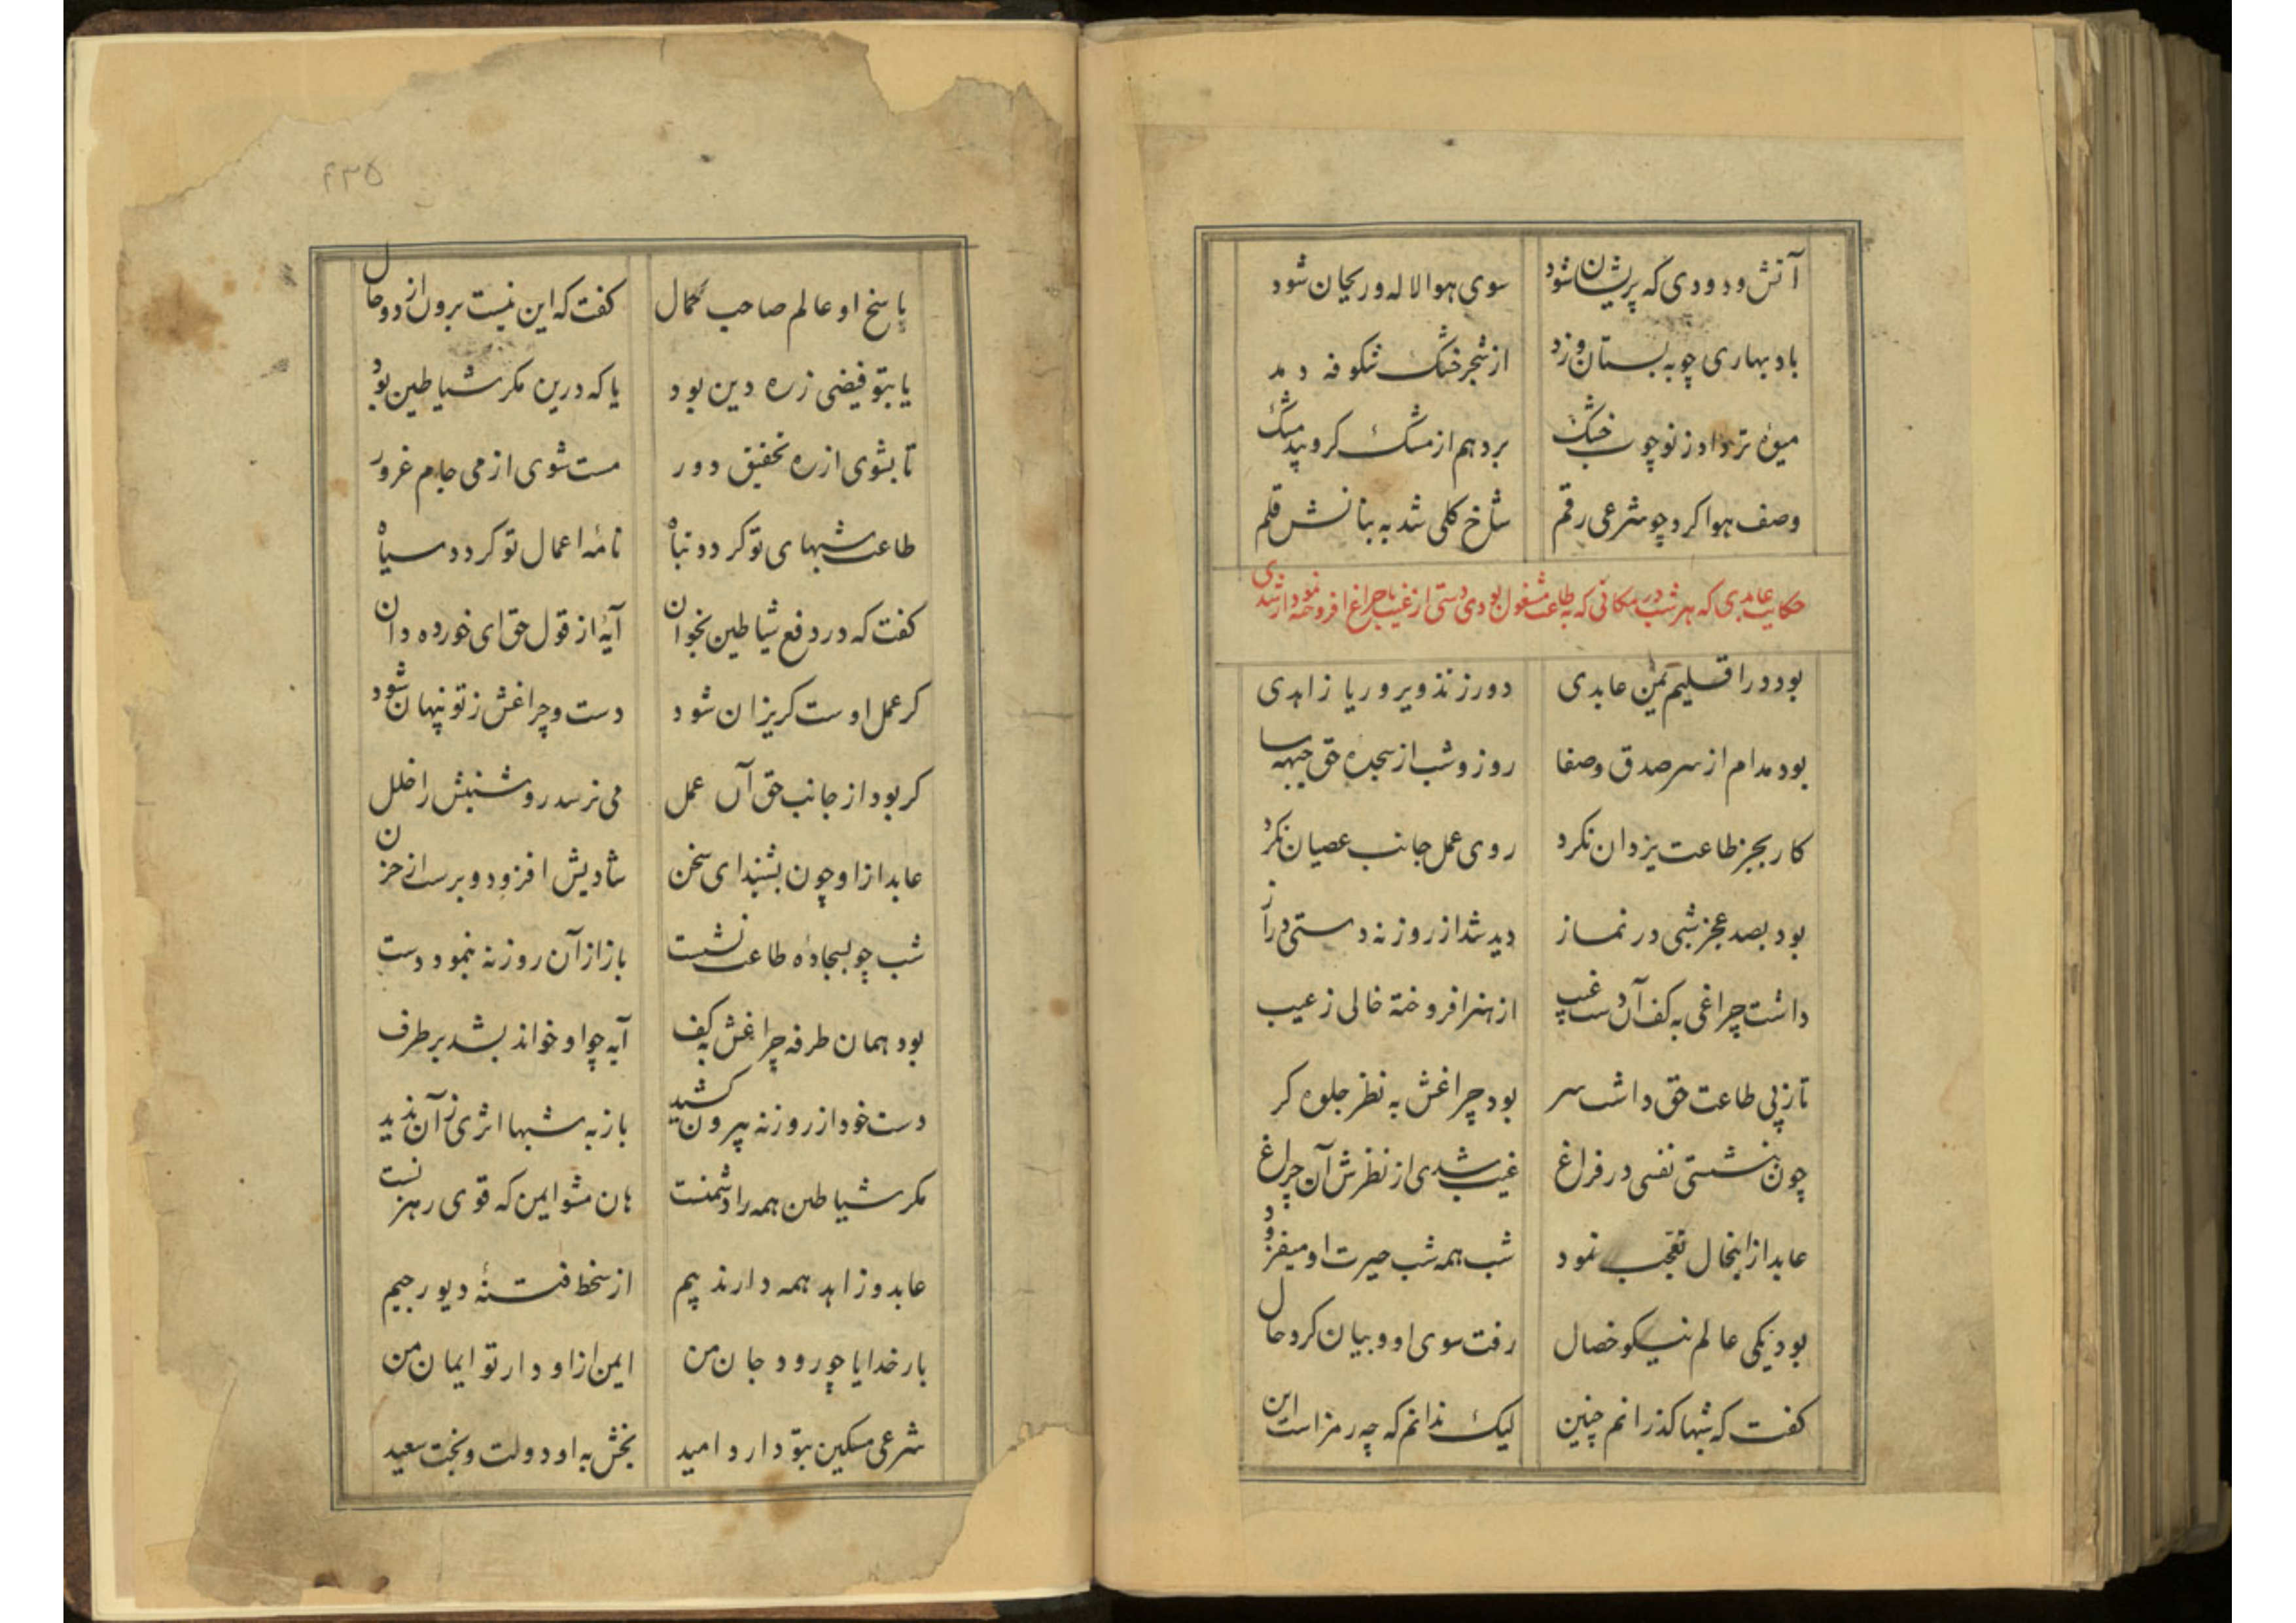 آتش و دودی که پریشان شود سوی هوا لاله و ریحان شود
باد بهاری چو به بستان وزد از شجر خشک شکوفه دمد
میوهٔ تر داد ز نو چوب خشک برد هم از مشک کرو پید مشک
وصف هوا کرد چو شرعی رقم شاخ کلی شد به بنانش قلم
حکایت عابدی که هر شب در مکانی که به طاعت مشغول بودی دستی از غیب با چراغ افروخته نمودار شدی
بود در اقلیم یمن عابدی دور ز تذویر و ریا زاهدی
بود مدام از سر صدق و صفا روز و شب از سجدهٔ حق جبهه سا
کار بجز طاعت یزدان نکرد روی عمل جانب عصیان نکرد
بود بصد عجز شبی در نماز دید شد از روزنه دستی دراز
داشت چراغی به کف آن دست غیب از هنر افروخته خالی ز عیب
تا ز پی طاعت حق داشت سر بود چراغش به نظر جلوه کر
چون بنشستی نفسی در فراغ غیب شدی از نظرش آن چراغ
عابد از اینحال تعجب نمود شب همه شب حیرت او میفزود
بود یکی عالم نیکو خصال رفت سوی او و بیان کرد حال
کفت که شبها کذرانم چنین لیک ندانم که چه رمز است این
۲۳۵
پاسخ او عالم صاحب کمال کفت که این نیست برون از دو حال
یا بتو فیضی ز ره دین بود یا که درین مکر شیاطین بود
تا بشوی از ره تحقیق دور مست شوی از می جام غرور
طاعت شبهای تو کردد تباه نامهٔ اعمال تو کردد سیاه
کفت که در دفع شیاطین بخوان آیهٔ از قول حق ای خورده دان
کر عمل اوست کریزان شود دست و چراغش ز تو پنهان شود
کر بود از جانب حق آن عمل می نرسد روشنیش را خلل
عابد از او چون بشنید ای سخن شادیش افزود و برست از حزن
شب چو بسجادهٔ طاعت نشست باز از آن روزنه بنمود دست
بود همان طرفه چراغش به کف آیه چو او خواند بشد بر طرف
دست خود از روزنه بیرون کشید باز به شبها اثری ز آن ندید
مکر شیاطین همه را دشمنست هان مشو ایمن که قوی رهزنست
عابد و زاهد همه دارند بیم از سخط فتنهٔ دیو رجیم
بار خدایا چو رود جان من ایمن از او دار تو ایمان من
شرعی مسکین بتو دارد امید بخش به او دولت و بخت سعید